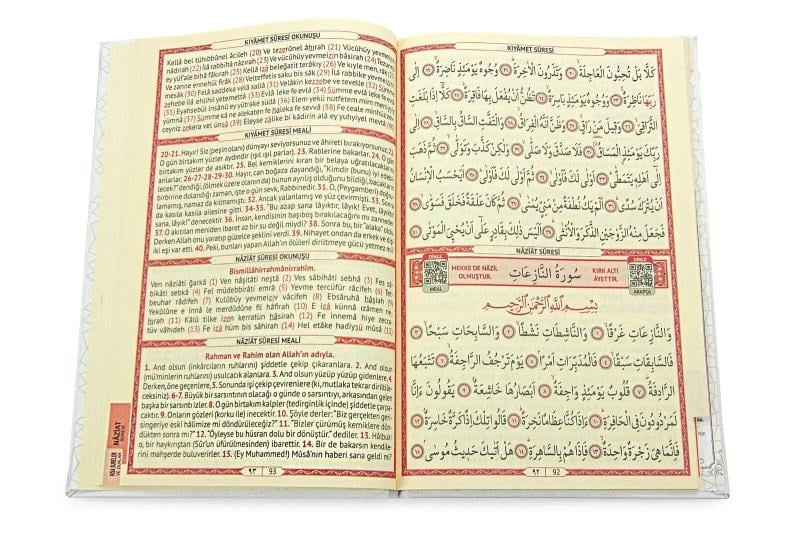 KIYÂMET SÛRESİ OKUNUŞU
Kellâ bel tühıbbûnel âcileh (20) Ve tezerûnel âhırah (21) Vücûhüy yevmeizin
nâdırah (22) İlâ rabbihâ nâzırah (23) Ve vücûhüy yevmeizim bâsirah (24) Tezunnü
ey yüf'ale bihâ fâkırah (25) Kellâ izâ beleğatit terâkıy (26) Ve kıyle men râk (27)
Ve zanne ennehül firâk (28) Velteffetis sâku bis sâk (29) İlâ rabbike yevmeizinil
mesâk (30) Felâ saddeka velâ sallâ (31) Velâkin kezzebe ve tevellâ (32) Sümme
zehebe ilâ ehlihî yetemettâ (33) Evlâ leke fe evlâ (34) Sümme evlâ leke fe evlâ
(35) Eyahsebül insânü ey yütrake südâ (36) Elem yekü nutfetem mim meniyyiy
yümnâ (37) Sümme kâne alekaten fe haleka fe sevvâ (38) Fe ceale minhüz
zevceyniz zekera vel ünsâ (39) Eleyse zâlike bi kâdirin alâ ey yuhyiyel mevtâ (40)
KIYÂMET SÛRESİ MEALİ
20-21. Hayır! Siz (peşin olan) dünyayı seviyorsunuz ve âhireti bırakıyorsunuz. 22.
O gün birtakım yüzler aydındır (ışıl ışıl parlar). 23. Rablerine bakarlar. 24. O gün
birtakım yüzler de asıktır. 25. Bel kemiklerini kıran bir belaya uğratılacaklarını
anlarlar. 26-27-28-29-30. Hayır, can boğaza dayandığı, "Kimdir (bunu) iyi edebi-
lecek?" dendiği, (ölmek üzere olanın da) bunun ayrılış olduğunu bildiği, bacakların
birbirine dolandığı zaman, işte o gün sevk, Rabbinedir. 31. O, (Peygamberi) doğru-
lamamış, namaz da kılmamıştı. 32. Ancak yalanlamış ve yüz çevirmişti. 33. Sonra
da kasıla kasıla ailesine gitti. 34-35. "Bu azap sana lâyıktır, lâyık! Evet, lâyıktır
sana, lâyık!" denecektir. 36. İnsan, kendisinin başıboş bırakılacağını mı zanneder?
37. O akıtılan meniden ibaret az bir su değil miydi? 38. Sonra bu, "alaka" oldu.
Derken Allah onu yaratıp güzelce şeklini verdi. 39. Nihayet ondan da erkek ve dişi
iki eşi var etti. 40. Peki, bunları yapan Allah'ın ölüleri diriltmeye gücü yetmez mi?
NÂZİÂT SÛRESİ OKUNUŞU
Bismillâhirrahmânirrahîm.
Ven nâziâti ğarkâ (1) Ven nâşitâti neştâ (2) Ves sâbihâti sebhâ (3) Fes sâ-
bikâti sebkâ (4) Fel müdebbirâti emrâ (5) Yevme tercüfür râcifeh (6) Tet-
beuhar râdifeh (7) Kulûbüy yevmeiziv vâcifeh (8) Ebsâruhâ hâşiah (9)
Yekûlûne e innâ le merdûdûne fil hâfirah (10) E izâ künnâ ızâmen ne-
hırah (11) Kâlû tilke izen kerratün hâsirah (12) Fe innemâ hiye zecra-
tüv vâhideh (13) Fe izâ hüm bis sâhirah (14) Hel etâke hadîysü mûsâ (15)
NÂZİÂT SÛRESİ MEALİ
Rahman ve Rahim olan Allah'ın adıyla.
1. And olsun (inkârcıların ruhlarını) şiddetle çekip çıkaranlara. 2. And olsun
(mü'minlerin ruhlarını) usulcacık alanlara. 3. And olsun yüzüp yüzüp gidenlere, 4.
Derken, öne geçenlere, 5. Sonunda işi çekip çevirenlere (ki, mutlaka tekrar diriltile-
ceksiniz). 6-7. Büyük bir sarsıntının olacağı o günde o sarsıntıyı, arkasından gelen
başka bir sarsıntı izler. 8. O gün birtakım kalpler (tedirginlik içinde) şiddetle çarpa-
caktır. 9. Onların gözleri (korku ile) inecektir. 10. Şöyle derler: "Biz gerçekten geri-
singeriye eski hâlimize mi döndürüleceğiz?" 11. "Bizler çürümüş kemiklere dön-
dükten sonra mı?" 12. "Öyleyse bu hüsran dolu bir dönüştür." dediler. 13. Hâlbuki
o, bir haykırıştan (Sûr'un üfürülmesinden) ibarettir. 14. Bir de bakarsın kendile-
rini mahşerde buluverirler. 15. (Ey Muhammed!) Mûsâ'nın haberi sana geldi mi?
٩٣ 93
NÂZİÂT
SÛRESİ
KISA SÛRELER
VE DUALAR
KIYÂMET SÛRESİ
كَلَّا بَلْ تُحِبُّونَ الْعَاجِلَةَ ﴿٢٠﴾ وَتَذَرُونَ الْاٰخِرَةَ ﴿٢١﴾ وُجُوهٌ يَوْمَئِذٍ نَاضِرَةٌ ﴿٢٢﴾ اِلٰى
رَبِّهَا نَاظِرَةٌ ﴿٢٣﴾ وَوُجُوهٌ يَوْمَئِذٍ بَاسِرَةٌ ﴿٢٤﴾ تَظُنُّ اَنْ يُفْعَلَ بِهَا فَاقِرَةٌ ﴿٢٥﴾ كَلَّا اِذَا بَلَغَتِ
التَّرَاقِيَ ﴿٢٦﴾ وَقِيلَ مَنْ رَاقٍ ﴿٢٧﴾ وَظَنَّ اَنَّهُ الْفِرَاقُ ﴿٢٨﴾ وَالْتَفَّتِ السَّاقُ بِالسَّاقِ ﴿٢٩﴾ اِلٰى
رَبِّكَ يَوْمَئِذٍ الْمَسَاقُ ﴿٣٠﴾ فَلَا صَدَّقَ وَلَا صَلّٰى ﴿٣١﴾ وَلٰكِنْ كَذَّبَ وَتَوَلّٰى ﴿٣٢﴾ ثُمَّ ذَهَبَ
اِلٰى اَهْلِهِ يَتَمَطّٰى ﴿٣٣﴾ اَوْلٰى لَكَ فَاَوْلٰى ﴿٣٤﴾ ثُمَّ اَوْلٰى لَكَ فَاَوْلٰى ﴿٣٥﴾ اَيَحْسَبُ الْاِنْسَانُ
اَنْ يُتْرَكَ سُدًى ﴿٣٦﴾ اَلَمْ يَكُ نُطْفَةً مِنْ مَنِيٍّ يُمْنٰى ﴿٣٧﴾ ثُمَّ كَانَ عَلَقَةً فَخَلَقَ فَسَوّٰى ﴿٣٨﴾
فَجَعَلَ مِنْهُ الزَّوْجَيْنِ الذَّكَرَ وَالْاُنْثٰى ﴿٣٩﴾ اَلَيْسَ ذٰلِكَ بِقَادِرٍ عَلٰى اَنْ يُحْيِيَ الْمَوْتٰى ﴿٤٠﴾
NÂZİÂT SÛRESİ
DİNLE
MEAL
MEKKE'DE NÂZİL
OLMUŞTUR.
سُورَةُ النَّازِعَاتِ
KIRK ALTI
ÂYETTİR.
DİNLE
ARAPÇA
بِسْمِ اللّٰهِ الرَّحْمٰنِ الرَّحِيمِ
وَالنَّازِعَاتِ غَرْقًا ﴿١﴾ وَالنَّاشِطَاتِ نَشْطًا ﴿٢﴾ وَالسَّابِحَاتِ سَبْحًا ﴿٣﴾
فَالسَّابِقَاتِ سَبْقًا ﴿٤﴾ فَالْمُدَبِّرَاتِ اَمْرًا ﴿٥﴾ يَوْمَ تَرْجُفُ الرَّاجِفَةُ ﴿٦﴾ تَتْبَعُهَا
الرَّادِفَةُ ﴿٧﴾ قُلُوبٌ يَوْمَئِذٍ وَاجِفَةٌ ﴿٨﴾ اَبْصَارُهَا خَاشِعَةٌ ﴿٩﴾ يَقُولُونَ ءَاِنَّا
لَمَرْدُودُونَ فِي الْحَافِرَةِ ﴿١٠﴾ ءَاِذَا كُنَّا عِظَامًا نَخِرَةً ﴿١١﴾ قَالُوا تِلْكَ اِذًا كَرَّةٌ خَاسِرَةٌ ﴿١٢﴾
فَاِنَّمَا هِيَ زَجْرَةٌ وَاحِدَةٌ ﴿١٣﴾ فَاِذَا هُمْ بِالسَّاهِرَةِ ﴿١٤﴾ هَلْ اَتٰيكَ حَدِيثُ مُوسٰى ﴿١٥﴾
٩٢ 92